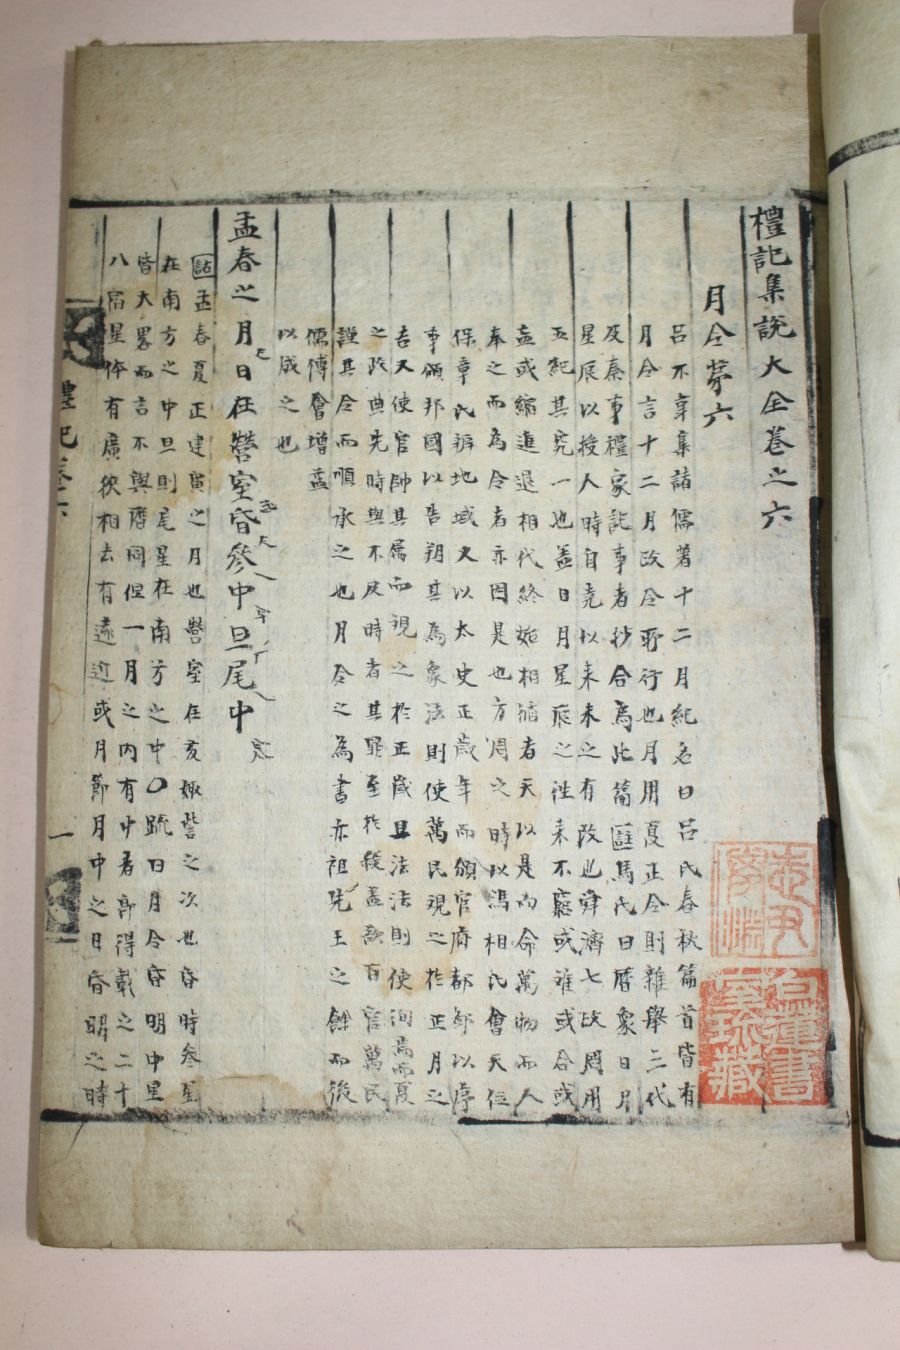 禮記集說大全卷之六
月令第六
呂不韋集諸儒著十二月紀名曰呂氏春秋篇首皆有
月令言十二月政令所行也月用夏正令則雜舉三代
及秦事禮家記事者抄合爲此篇 馬氏曰曆象日月
星辰以授人時自堯以來未之有改也舜濟七政周用
五紀其究一也盖日月星辰之往来不窮或离或合或
盈或縮進退相代終始相循者天以是而命萬物而人
奉之而為令者亦因是也方周之時以馮相氏會天位
保章氏辨地域又以太史正歲年而頒官府都鄙以序
事頒邦國以告朔其為象法則使萬民視之於正月之
吉又使官帥其屬而視之於正歲且法法則使徇焉而夏
之政典先時與不及時者其罪至於殺盖欲百官萬民
謹其令而順承之也月令之為書亦祖先王之餘而後
儒傅會增益
以成之也
孟春之月日在營室昏參中旦尾中
孟春夏正建寅之月也營室在亥娵訾之次也昏時參星
在南方之中旦則尾星在南方之中○疏曰月令昏明中星
皆大畧而言不與曆同但一月之内有中者即得載之二十
八宿星体有廣狹相去有遠近或月節月中之日昏明之時
禮記卷六
一